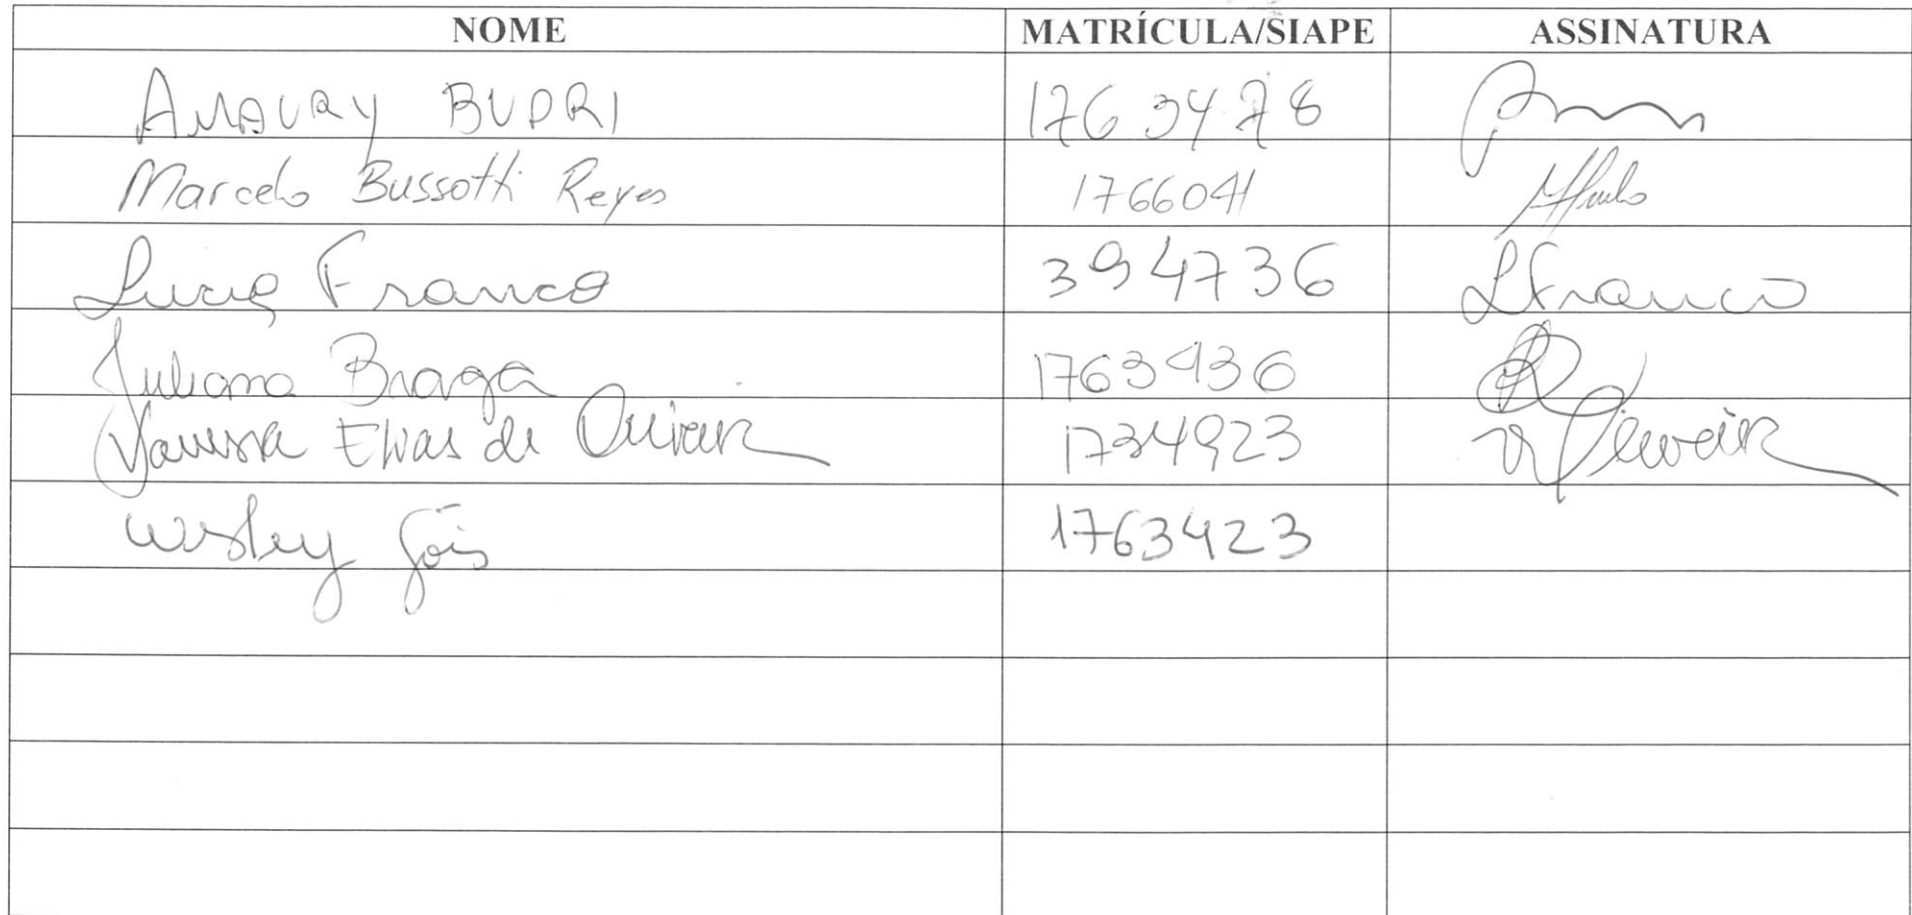 NOME MATRÍCULA/SIAPE ASSINATURA
AMAURY BUDRI 1763478
Marcelo Bussotti Reyes 1766041
Lucia Franco 394736 LFranco
Juliana Braga 1763436
Vanessa Elias de Oliveira 1734923 VOliveira
Wesley Góis 1763423